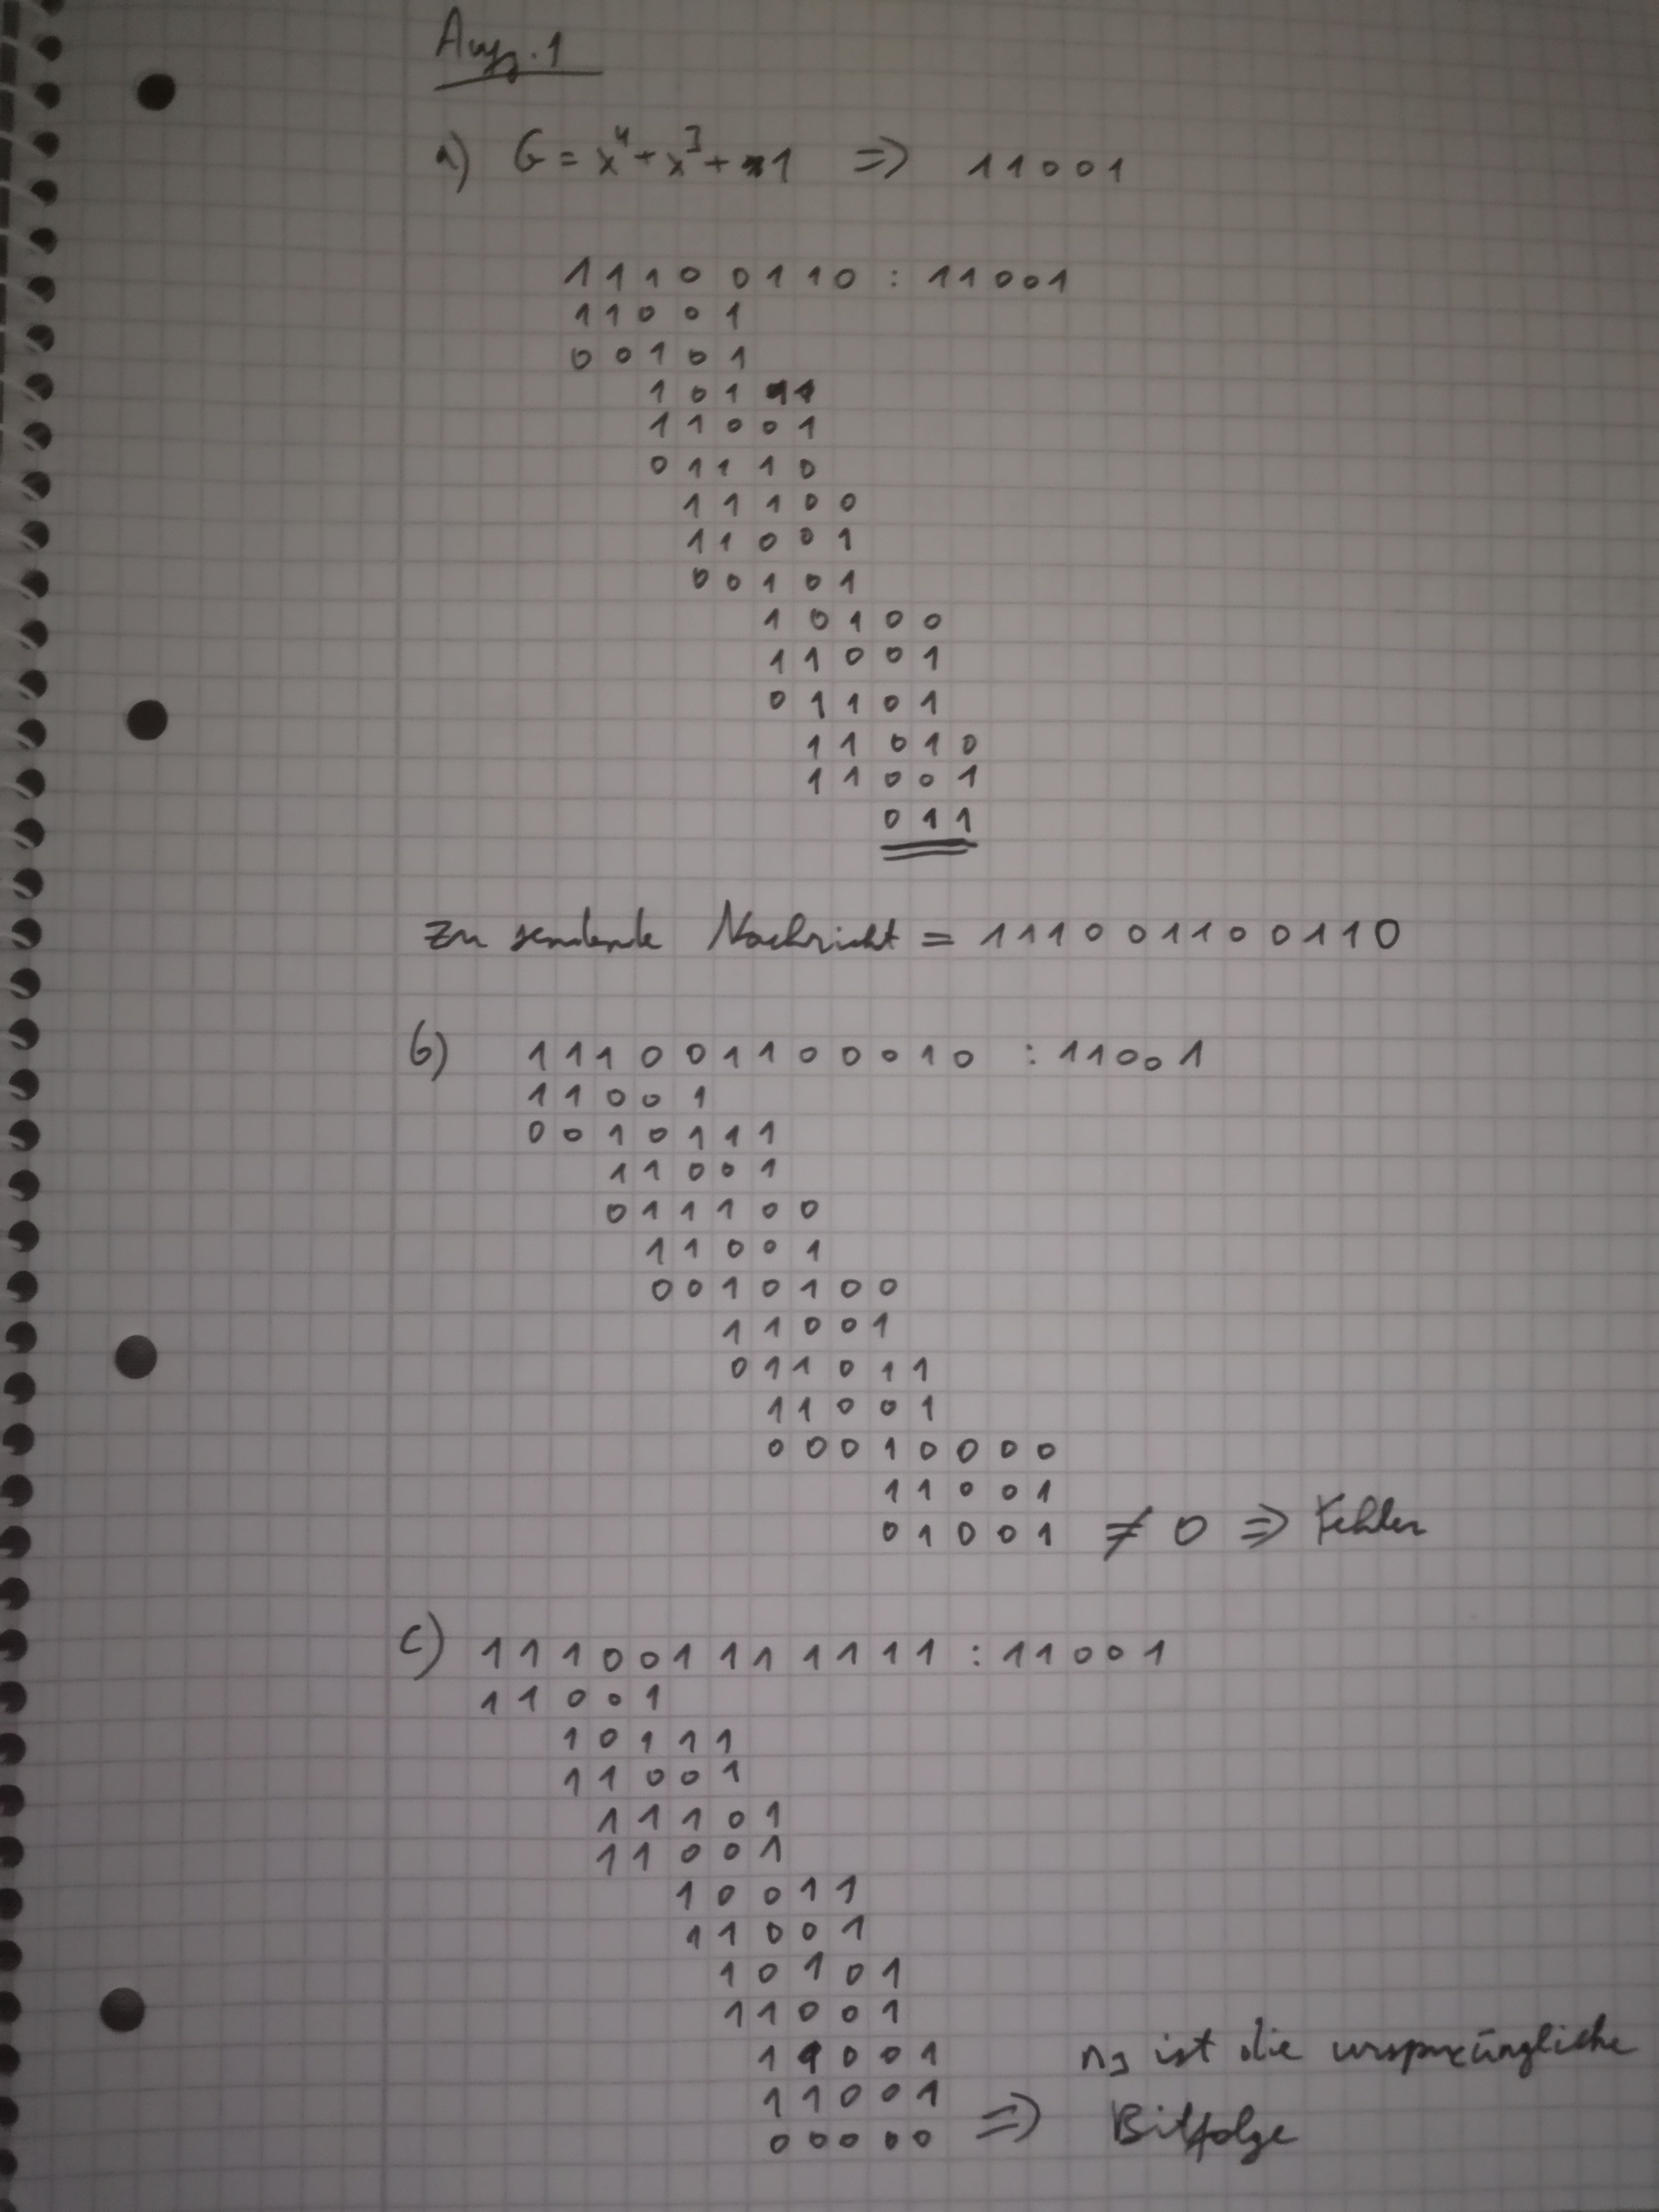 Aufg. 1
a) G = x⁴ + x³ + 1 => 11001
11100110 : 11001
11001
00101
10111
11001
01110
11100
11001
00101
10100
11001
01101
11010
11001
011
Zu sendende Nachricht = 111001100110
b) 111001100010 : 11001
11001
0010111
11001
011100
11001
0010100
11001
011011
11001
00010000
11001
01001 ≠ 0 => Fehler
c) 111001111111 : 11001
11001
10111
11001
11101
11001
10011
11001
10101
11001
11001 ist die ursprüngliche
11001
00000 => Bitfolge